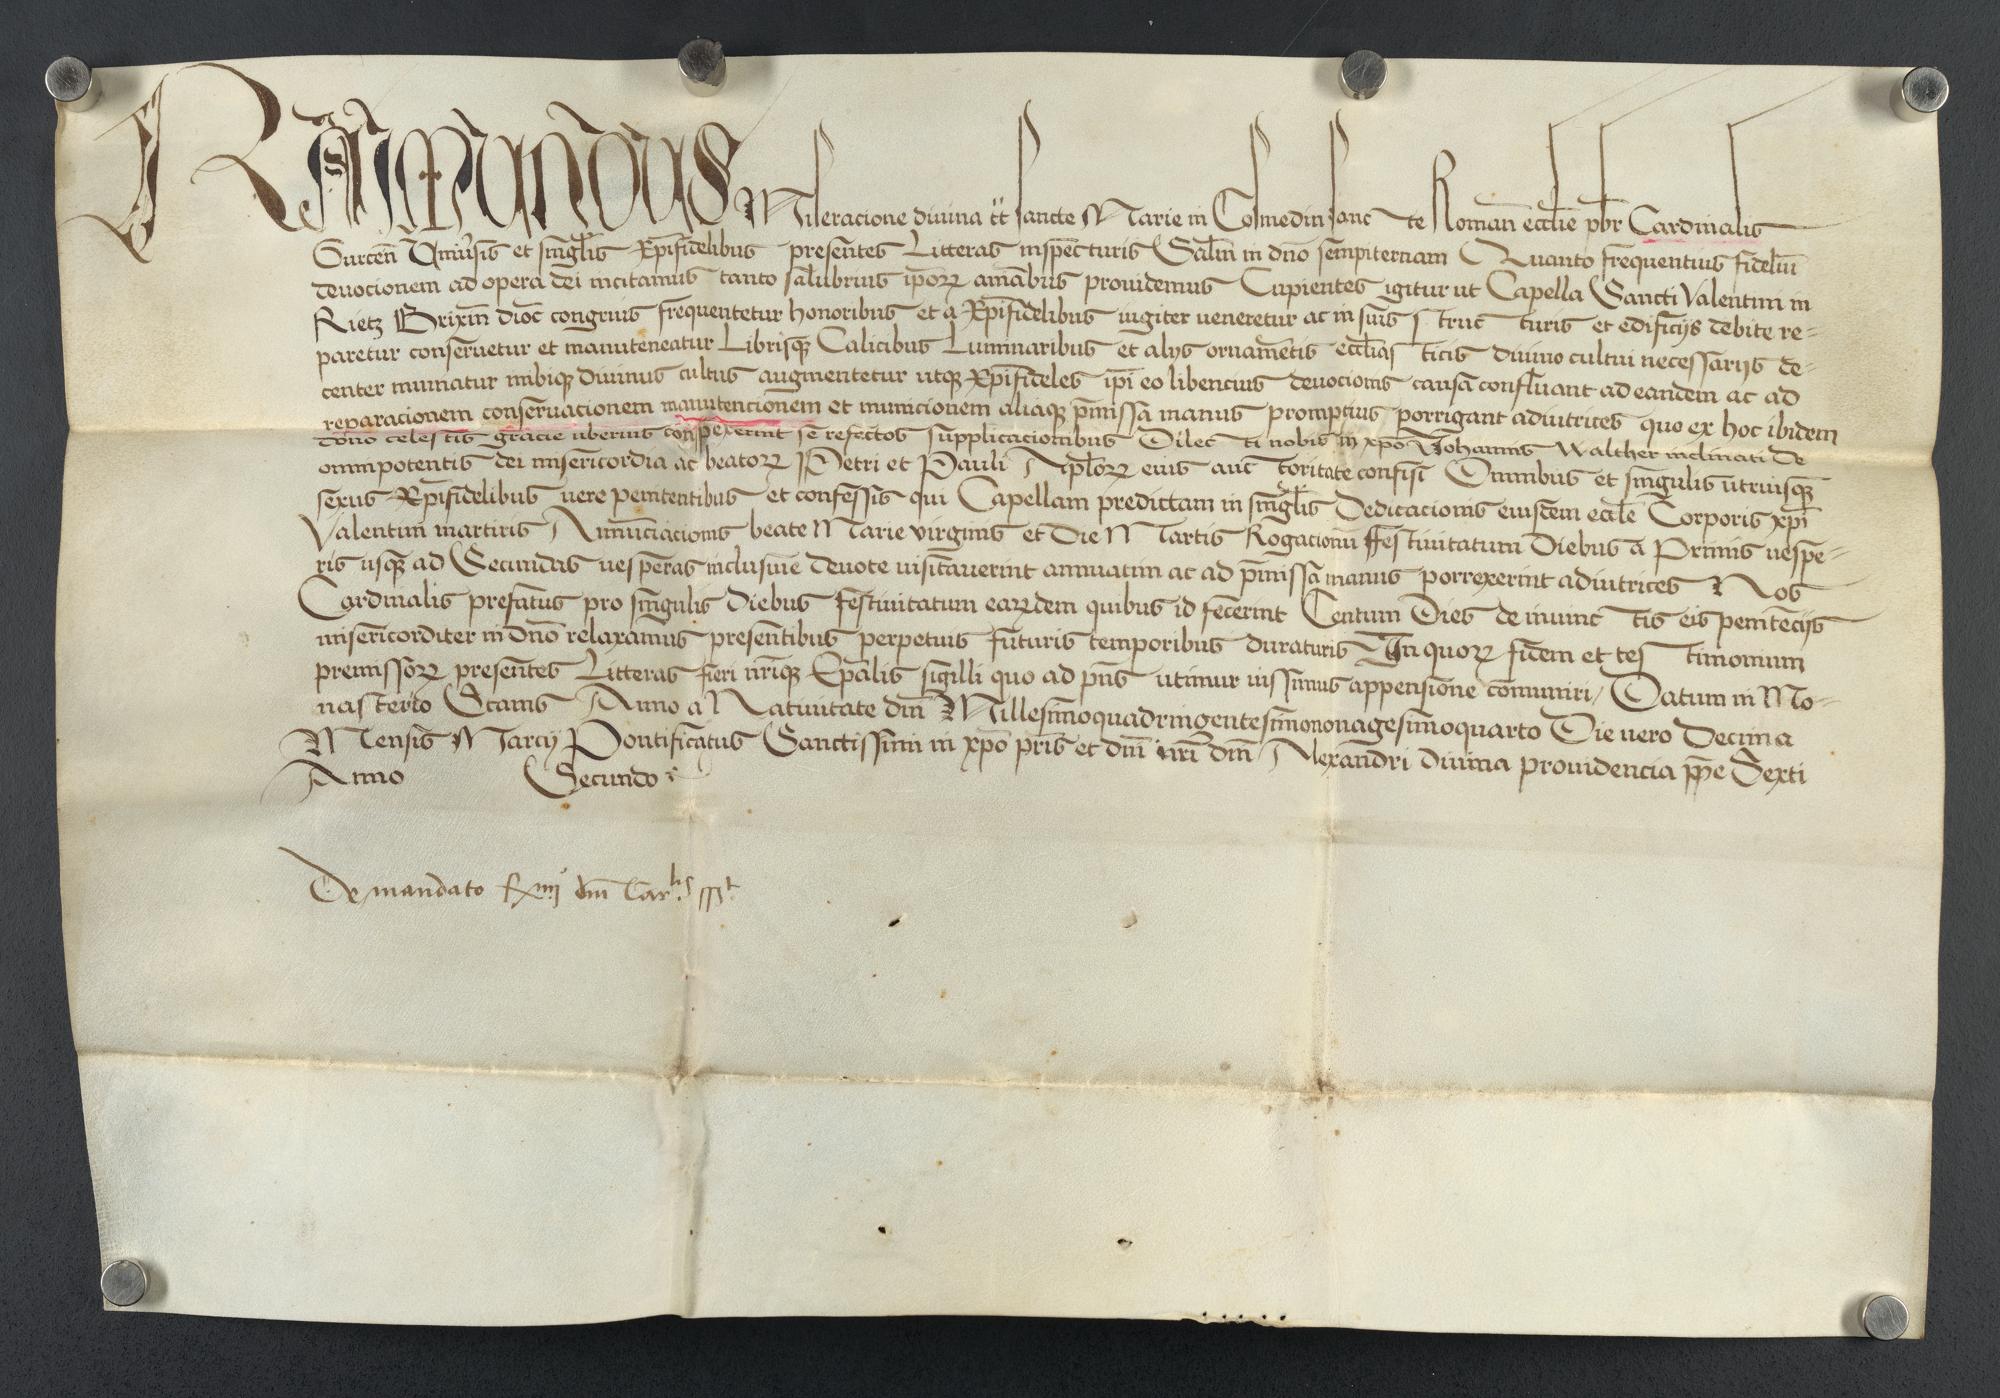 RAIMUNDUS Miseracione divina tt̄ sancte Marie in Cosmedin sancte Roman̄ eccl̄ie pb̄r Cardinalis
Gurceñ Univ̄sis et singl̄is Xp̄ifidelibus presentes Litteras inspecturis Sal̄m in dn̄o sempiternam Quanto frequentius fideliū
devocionem ad opera dei incitamus tanto salubrius ip̄oꝝ aīabus providemus Cupientes igitur ut Capella Sancti Valentini in
Rietz Brixin̄ dioc̄ congruis frequentetur honoribus et a Xp̄ifidelibus iugiter veneretur ac in suis structuris et edificijs debite re-
paretur conservetur et manuteneatur Librisqꝫ Calicibus Luminaribus et alijs ornamētis eccl̄iasticis divino cultui necessarijs de-
center muniatur inibiqꝫ divinus cultus augmentetur utqꝫ Xp̄ifideles ip̄i eo libencius devocionis causa confluant ad eandem ac ad
reparacionem conservacionem manutencionem et municionem aliaqꝫ p̄missa manus promptius porrigant adiutrices quo ex hoc ibidem
dono celestis gracie uberius conspexerint se refectos supplicacionibus Dilecti nobis in xp̄o Johannis Walther inclinati de
omnipotentis dei misericordia ac beatoꝝ Petri et Pauli Apl̄oꝝ eius auctoritate confisi Omnibus et singulis utriusqꝫ
sexus Xp̄ifidelibus vere penitentibus et confessis qui Capellam predictam in singl̄is Dedicacionis eiusdem eccl̄ie Corporis xp̄i
Valentini martiris Annūciacionis beate Marie virginis et die Martis Rogacionū Festivitatum diebus a Primis vespe-
ris usqꝫ ad Secundas vesperas inclusive devote visitaverint annuatim ac ad p̄missa manus porrexerint adiutrices Nos
Cardinalis prefatus pro singulis diebus festivitatum eaꝝdem quibus id fecerint Centum Dies de iniunctis eis penitēcijs
misericorditer in dn̄o relaxamus presentibus perpetuis futuris temporibus duraturis In quoꝝ fidem et testimonium
premissoꝝ presentes Litteras fieri nr̄iqꝫ Ep̄alis sigilli quo ad pn̄s utimur iussimus appensione com̄uniri Datum in Mo-
nasterio Stams Anno a Nativitate dn̄i Millesimoquadringentesimononagesimoquarto Die vero Decima
Mensis Marcij Pontificatus Sanctissimi in xp̄o pr̄is et dn̄i nr̄i dn̄i Alexandri divina providencia pp̄e Sexti
Anno Secundo
De mandato Rx̄mi dn̄i Car^lis